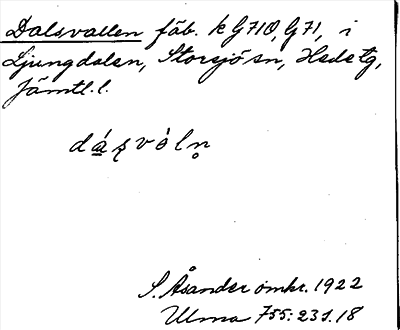 Dalsvallen fäb. k G710, G71, i
Ljungdalen, Storsjö sn, Hede tg,
Jämtl. l.
dásvóln̥
S. Åsander omkr. 1922
Ulma 755: 231.18